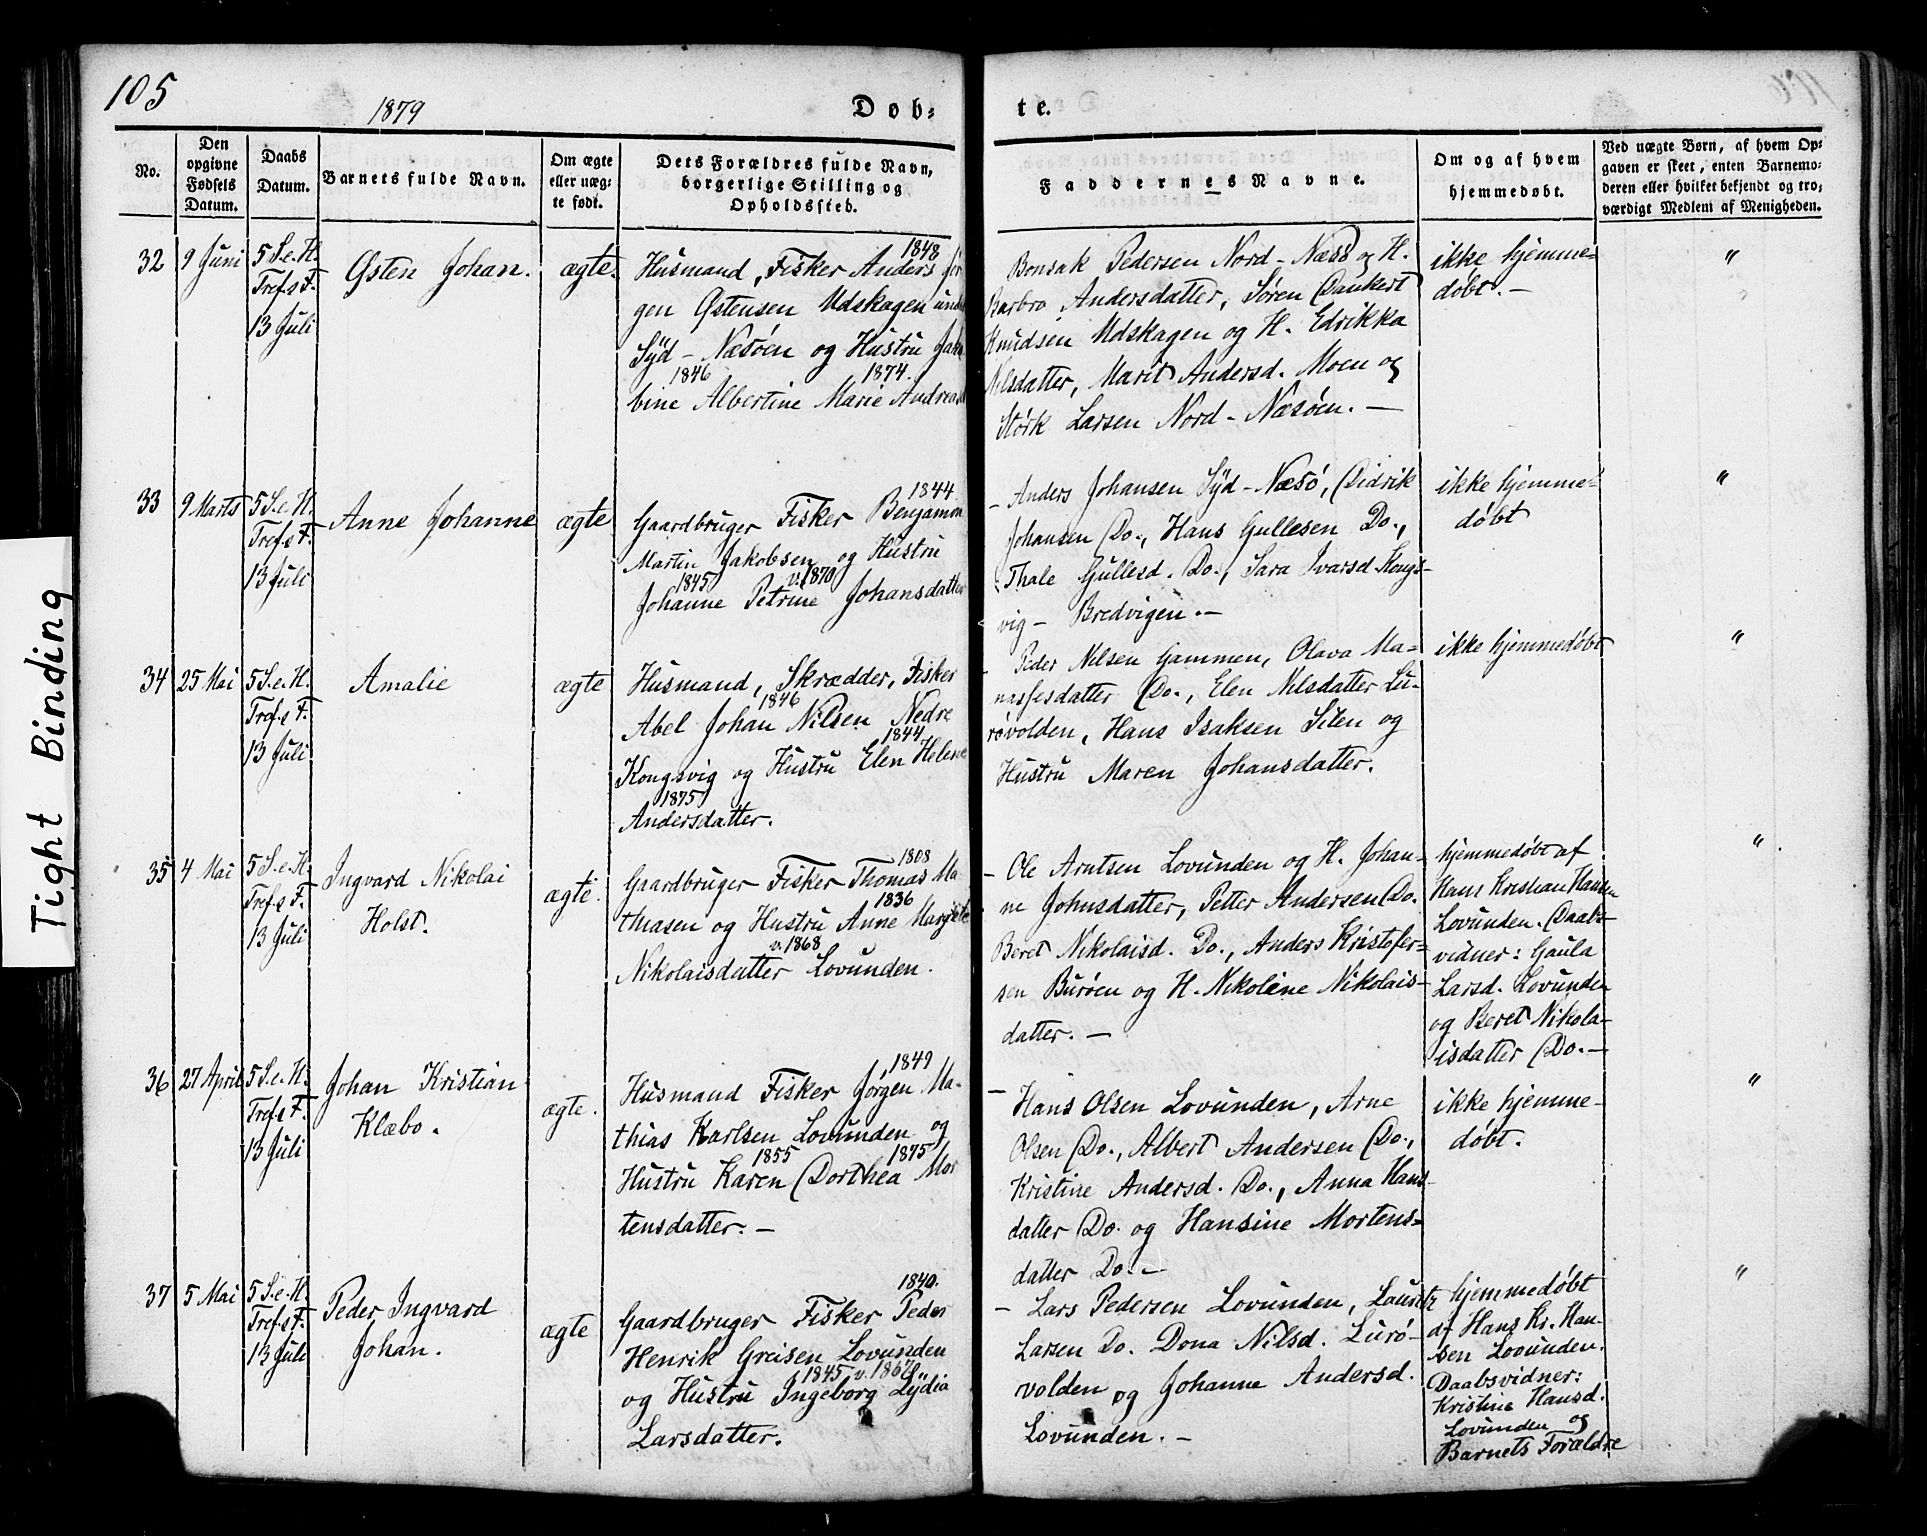 105
1879
Døb-
te.
No.
Den opgivne Fødsels Datum.
Daabs Datum.
Barnets fulde Navn.
Om ægte eller uægte født.
Dets Forældres fulde Navn, borgerlige Stilling og Opholdssted.
Faddernes Navne.
Om og af hvem hjemmedøbt.
Ved uægte Børn, af hvem Opgaven er skeet, enten Barnemoderen eller hvilket bekjendt og troværdigt Medlem af Menigheden.
32
9 Juni
5 S. e. H.
Tref. s F.
13 Juli
Østen Johan.
ægte.
1848
Husmand, Fisker Anders Jør
gen Østensen Udskagen und
Syd - Næsøen og Hustru Jako
1846 1874.
bine Albertine Marie Andreasd
Bonsak Pedersen Nord - Næsø og H.
Barbro Andersdatter, Søren Dankert
Knudsen Udskagen og H. Edrikka
Nilsdatter, Marit Andersd. Moen og
Størk Larsen Nord - Næsøen. —
ikke hjemme=
døbt. —
"
33
9 Marts
5 S. e. H.
Tref. s F.
13 Juli
Anne Johanne
ægte
1844.
Gaardbruger Fisker Benjamin
Martin Jakobsen og Hustru
1845 v. 1870
Johanne Petrine Johansdatter
— Anders Johansen Syd - Næsø, Didrik
Johansen Do., Hans Gullesen Do.,
Thale Gullesd. Do., Sara Ivarsd Kongs-
vig - Bredvigen. —
ikke hjemme=
døbt
"
34
25 Mai
5 S. e. H.
Tref. s F.
13 Juli
Amalie
ægte
Husmand, Skrædder, Fisker
1846
Abel Johan Nilsen Nedre
1844
Kongsvig og Hustru Elen Helene
1875
Andersdatter.
— Peder Nilsen Gammen, Olava Ma=
nassesdatter Do., Elen Nilsdatter Lu-
røvolden, Hans Isaksen Silen og
Hustru Maren Johansdatter.
ikke hjemmedøbt
"
35
4 Mai
5 S. e. H.
Tref. s F.
13 Juli
Ingvard Nikolai
Holst.
ægte.
1808
Gaardbruger Fisker Thomas Ma
1836
thiasen og Hustru Anne Margrete
v. 1868
Nikolaisdatter Lovunden.
— Ole Arntsen Lovunden og H. Johan-
ne Johnsdatter, Petter Andersen Do.
Beret Nikolaisd. Do., Anders Kristofer=
sen Burøen og H. Nikoline Nikolais-
datter. —
hjemmedøbt af
Hans Kristian Hansen
Lovunden. Daabs-
vidner: Gaula
Larsd. Lovunden
og Beret Nikola-
isdatter Do. —
"
36
27 April
5 S. e. H.
Tref. s F.
13 Juli
Johan Kristian
Klæbo.
ægte.
1849
Husmand Fisker Jørgen Ma-
thias Karlsen Lovunden og
1855 1875
Hustru Karen Dorthea Mor
tensdatter. —
— Hans Olsen Lovunden, Arne
Olsen Do., Albert Andersen Do.,
Kristine Andersd. Do., Anna Hans-
datter Do. og Hansine Mortens=
datter Do. —
ikke hjemme-
døbt.
"
37
5 Mai
5 S. e. H.
Tref. s F.
13 Juli
Peder Ingvard
Johan.
ægte
1840.
Gaardbruger Fisker Peder
Henrik Greisen Lovunden
1845 v. 1867
og Hustru Ingeborg Lydia
Larsdatter.
— Lars Pedersen Lovunden, Lauritz
Larsen Do. Dona Nilsd. Lurø-
volden og Johanne Andersd.
Lovunden. —
hjemmedøbt
af Hans Kr. Han-
sen Lovunden.
Daabsvidner:
Kristine Hansd.
Lovunden og
Barnets Forældre
"
Tight Binding